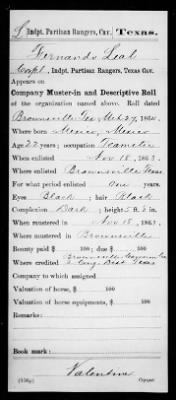 L | Indpt. Partisan Rangers, Cav. | Texas.
Fernando Leal
Corpl, Indpt. Partisan Rangers, Texas Cav.
Appears on
Company Muster-in and Descriptive Roll
of the organization named above. Roll dated
Brownsville Tex, 1864.
Where born Mexico, Mexico
Age 22 years; occupation Teamster
When enlisted Nov 18, 1863.
Where enlisted Brownsville Texas
For what period enlisted one years.
Eyes Black; hair Black
Complexion Dark; height 5 ft. in.
When mustered in Nov 18, 1863.
Where mustered in Brownsville
Bounty paid $ 100; due $ 100
Where credited Brownsville
Dist Texas
Company to which assigned
Valuation of horse, $ 100
Valuation of horse equipments, $ 100
Remarks:
Book mark:
Valentine
Copyist.